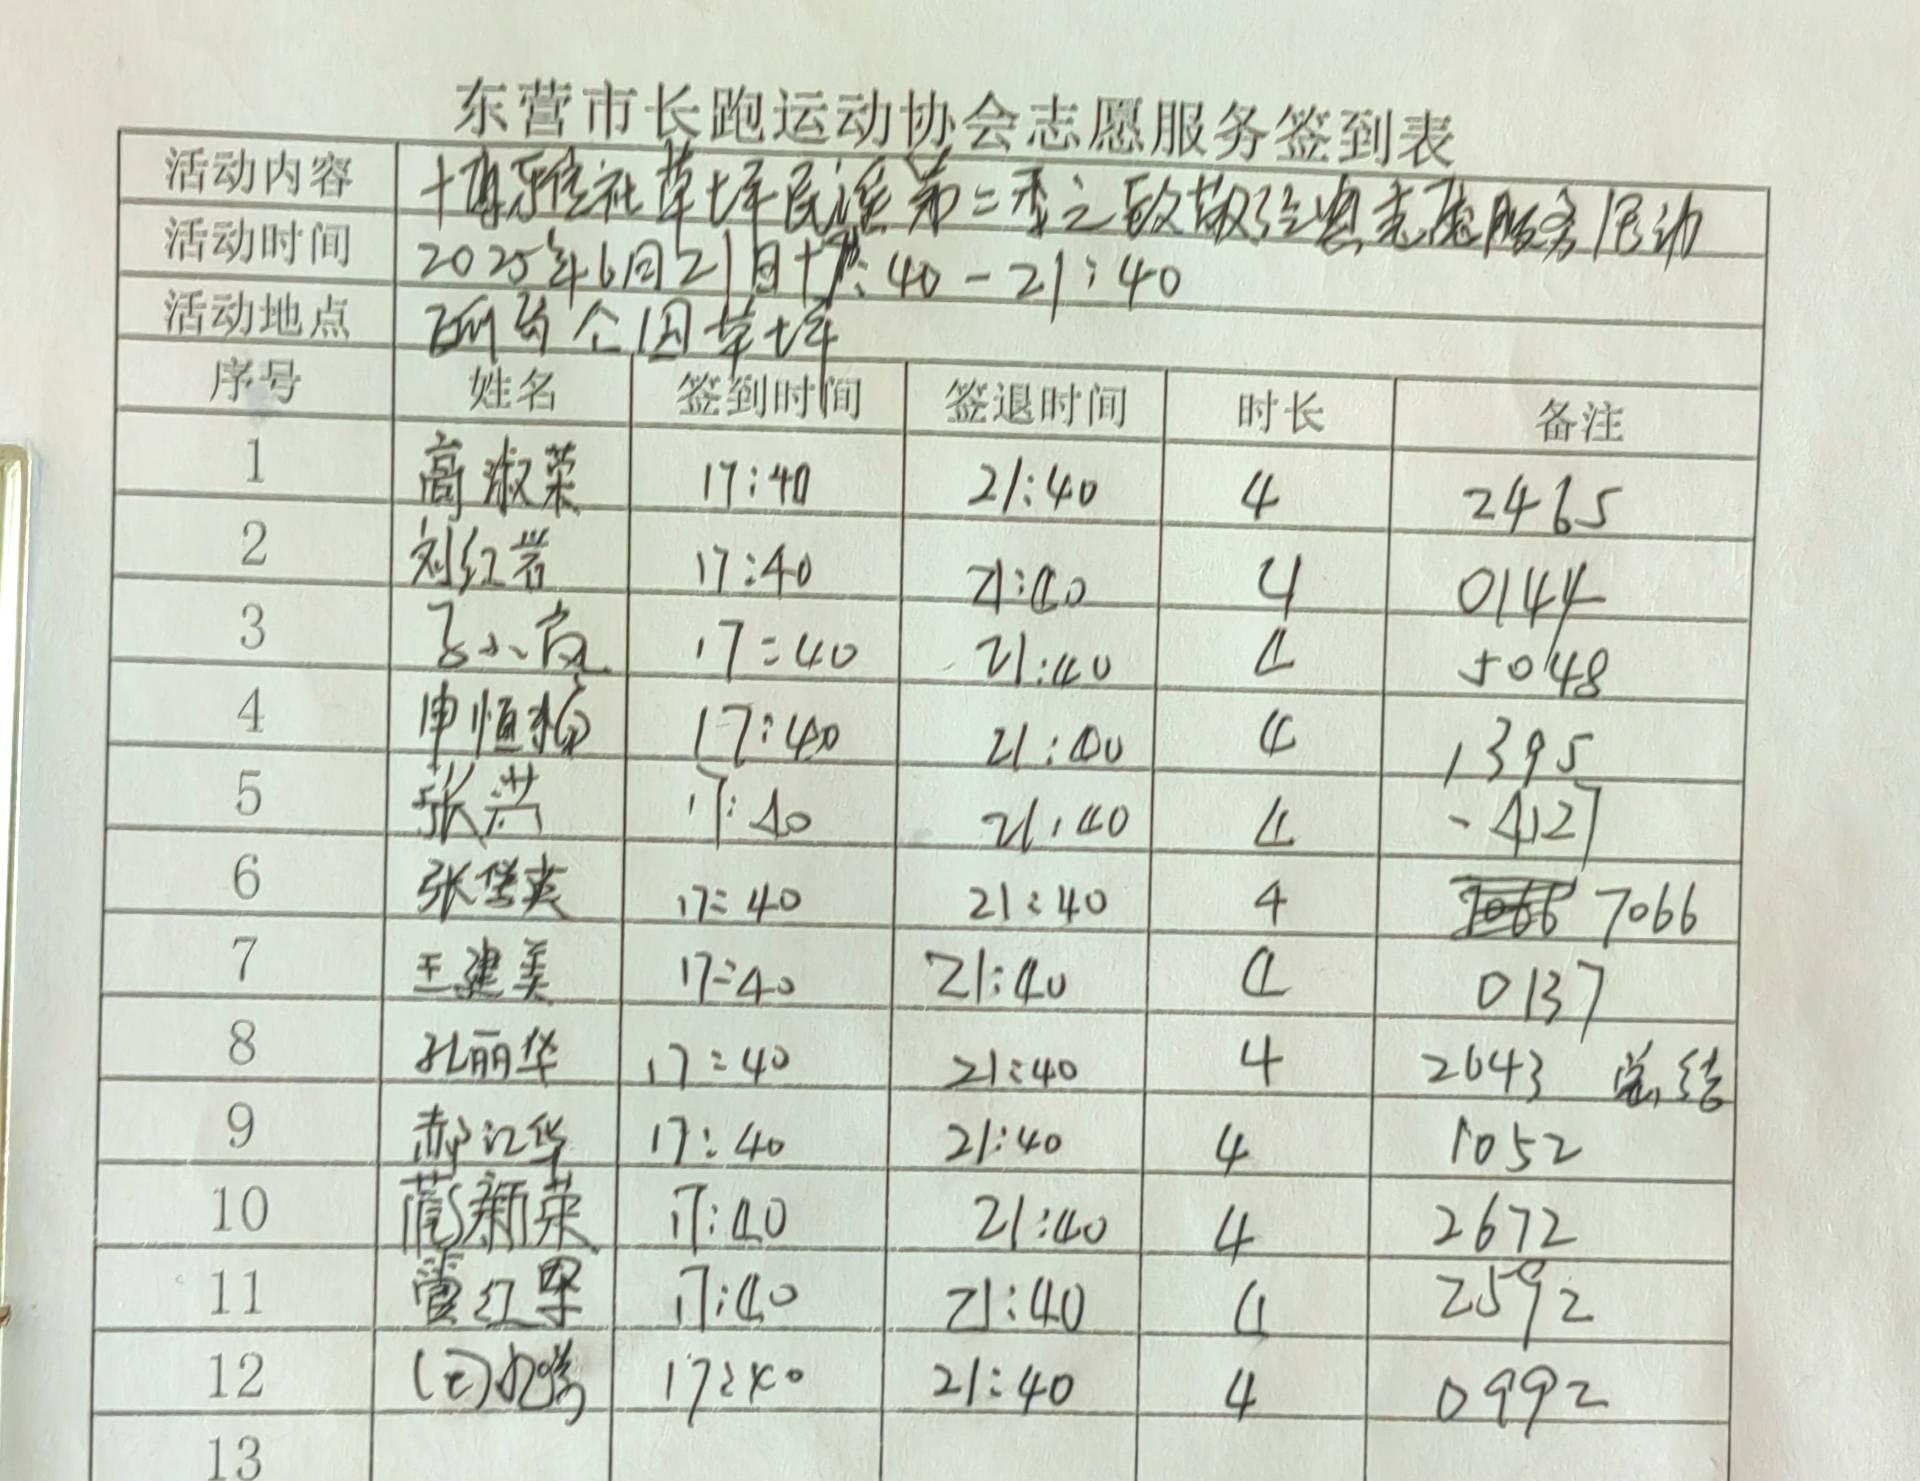 东营市长跑运动协会志愿服务签到表
活动内容 草坪民谣第二季之致敬经典志愿服务活动
活动时间 2025年6月21日 17:40-21:40
活动地点 草坪
序号 姓名 签到时间 签退时间 时长 备注
1 高淑荣 17:40 21:40 4 2465
2 刘红岩 17:40 21:40 4 0144
3 小 17:40 21:40 4 5048
4 申恒 17:40 21:40 4 1395
5 张洪 17:40 21:40 4 -4127
6 张 17:40 21:40 4 7066
7 王建美 17:40 21:40 4 0137
8 孔丽华 17:40 21:40 4 2643 总结
9 郝江华 17:40 21:40 4 1052
10 新英 17:40 21:40 4 2672
11 红 17:40 21:40 4 2592
12 17:40 21:40 4 0992
13